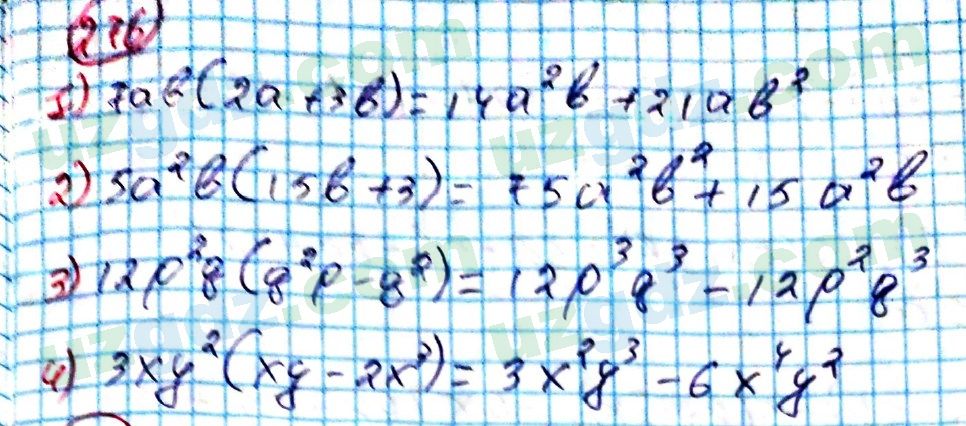 276
1) 7ab(2a+3b)=14a²b+21ab²
2) 5a²b(15b+3)=75a²b²+15a²b
3) 12p²q(q²p-q²)=12p³q³-12p²q³
4) 3xy²(xy-2x³)=3x²y³-6x⁴y²
uzgdz.com